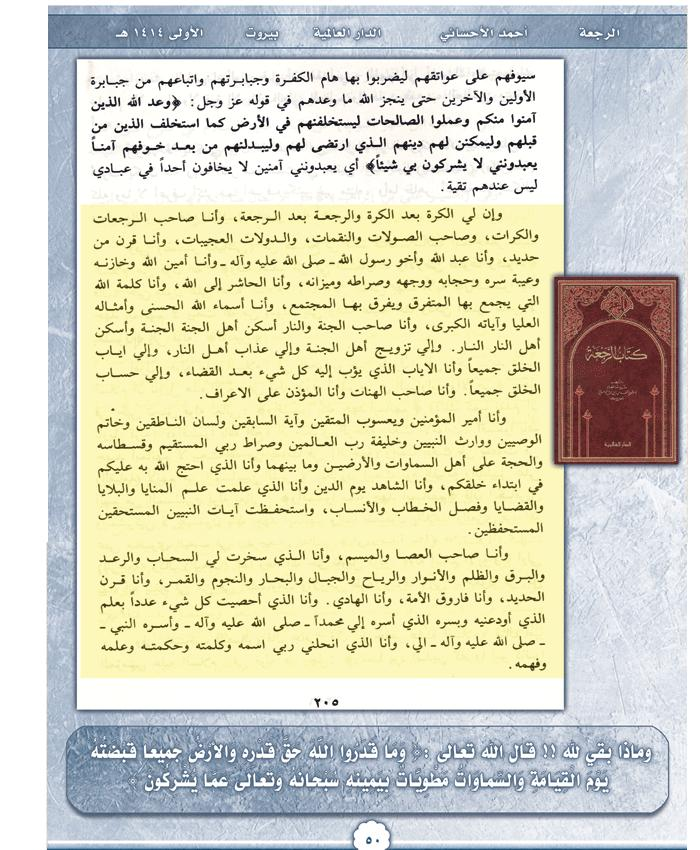 الرجعة أحمد الأحسائي الدار العالمية بيروت الأولى ١٤١٤ هـ
سيوفهم على عواتقهم ليضربوا بها هام الكفرة وجبابرتهم واتباعهم من جبابرة
الأولين والآخرين حتى ينجز الله ما وعدهم في قوله عز وجل: ﴿وعد الله الذين
آمنوا منكم وعملوا الصالحات ليستخلفنهم في الأرض كما استخلف الذين من
قبلهم وليمكنن لهم دينهم الذي ارتضى لهم وليبدلنهم من بعد خوفهم آمناً
يعبدونني لا يشركون بي شيئاً﴾ أي يعبدونني آمنين لا يخافون أحداً في عبادي
ليس عندهم تقية.
وإن لي الكرة بعد الكرة والرجعة بعد الرجعة، وأنا صاحب الرجعات
والكرات، وصاحب الصولات والنقمات، والدولات العجيبات، وأنا قرن من
حديد، وأنا عبد الله وأخو رسول الله ـ صلى الله عليه وآله ـ وأنا أمين الله وخازنه
وعيبة سره وحجابه ووجهه وصراطه وميزانه، وأنا الحاشر إلى الله، وأنا كلمة الله
التي يجمع بها المتفرق ويفرق بها المجتمع، وأنا أسماء الله الحسنى وأمثاله
العليا وآياته الكبرى، وأنا صاحب الجنة والنار أسكن أهل الجنة الجنة وأسكن
أهل النار النار. وإلي تزويج أهل الجنة وإلي عذاب أهل النار، وإلي اياب
الخلق جميعاً وأنا الاياب الذي يؤب إليه كل شيء بعد القضاء، وإلي حساب
الخلق جميعاً. وأنا صاحب الهنات وأنا المؤذن على الاعراف.
وأنا أمير المؤمنين ويعسوب المتقين وآية السابقين ولسان الناطقين وخاتم
الوصيين ووارث النبيين وخليفة رب العالمين وصراط ربي المستقيم وقسطاسه
والحجة على أهل السماوات والأرضين وما بينهما وأنا الذي احتج الله به عليكم
في ابتداء خلقكم، وأنا الشاهد يوم الدين وأنا الذي علمت علم المنايا والبلايا
والقضايا وفصل الخطاب والأنساب، واستحفظت آيات النبيين المستحقين
المستحفظين.
وأنا صاحب العصا والميسم، وأنا الذي سخرت لي السحاب والرعد
والبرق والظلم والأنوار والرياح والجبال والبحار والنجوم والقمر، وأنا قرن
الحديد، وأنا فاروق الأمة، وأنا الهادي. وأنا الذي أحصيت كل شيء عدداً بعلم
الذي أودعنيه وبسره الذي أسره إلي محمداً ـ صلى الله عليه وآله ـ وأسره النبي ـ
ـ صلى الله عليه وآله ـ الي، وأنا الذي انحلني ربي اسمه وكلمته وحكمته وعلمه
وفهمه.
٢٠٥
كتاب الرجعة
الدار العالمية
وماذا بقي لله !! قال الله تعالى : ﴿ وما قدروا اللّه حقّ قدْره والأرضُ جميعا قبْضتُهُ
يوْم الْقيامة والسّماواتُ مطْويّات بيمينه سُبْحانه وتعالى عمّا يُشْركون ﴾
٥٠